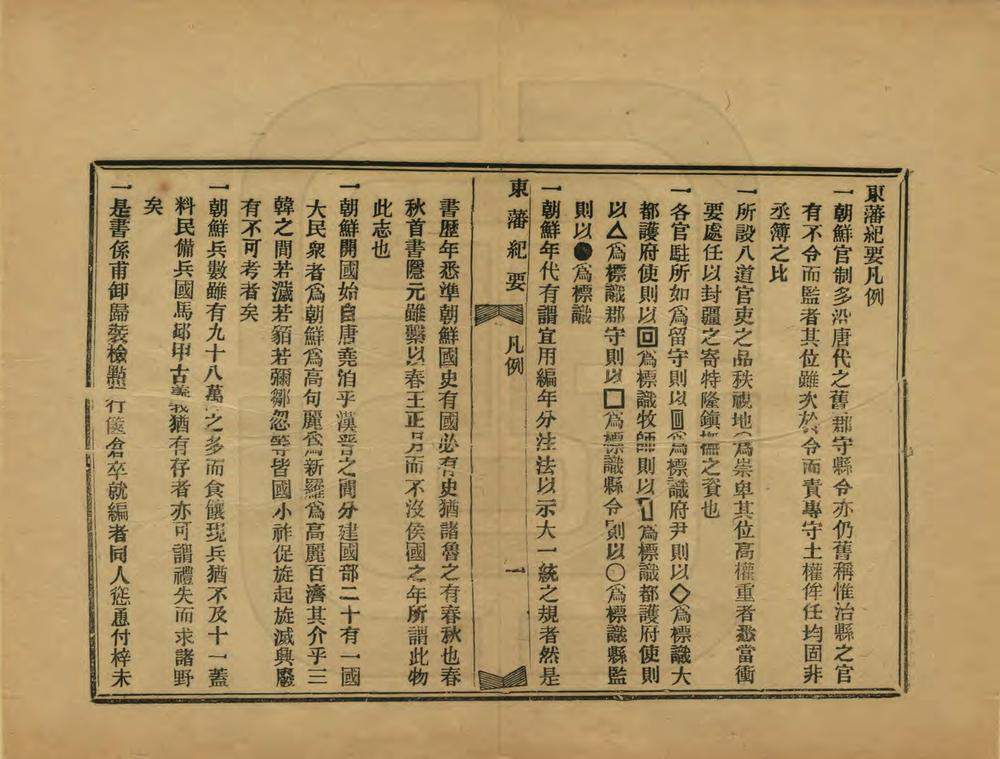 東藩紀要凡例
一朝鮮官制多沿唐代之舊郡守縣令亦仍舊稱惟治縣之官
有不令而監者其位雖次於令而責專守土權侔任均固非
丞簿之比
一所設八道官吏之品秩視地為崇卑其位高權重者悉當衝
要處任以封疆之寄特隆鎮撫之資也
一各官駐所如為留守則以回為標識府尹則以◇為標識大
都護府使則以回為標識牧師則以為標識都護府使則
以△為標識郡守則以□為標識縣令則以○為標識縣監
則以●為標識
一朝鮮年代有謂宜用編年分注法以示大一統之規者然是
東藩紀要 凡例 一
書歷年悉準朝鮮國史有國必有史猶諸魯之有春秋也春
秋首書隱元雖繫以春王正月而不沒侯國之年所謂此物
此志也
一朝鮮開國始自唐堯洎乎漢晉之間分建國部二十有一國
大民衆者為朝鮮為高句麗為新羅為高麗百濟其介乎三
韓之間若濊若貊若彌鄒忽等皆國小祚促旋起旋滅興廢
有不可考者矣
一朝鮮兵數雖有九十八萬之多而食饟現兵猶不及十一蓋
料民備兵國馬邱甲古義猶有存者亦可謂禮失而求諸野
矣
一是書係甫卸歸裝檢點行篋倉卒就編者同人慫恿付梓未